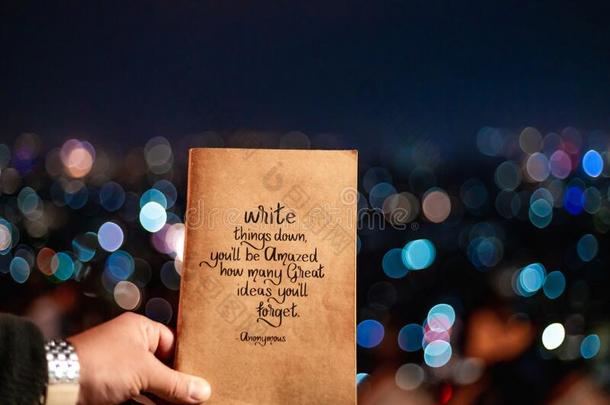 write
things down,
you'll be Amazed
how many Great
ideas you'll
forget.
-Anonymous